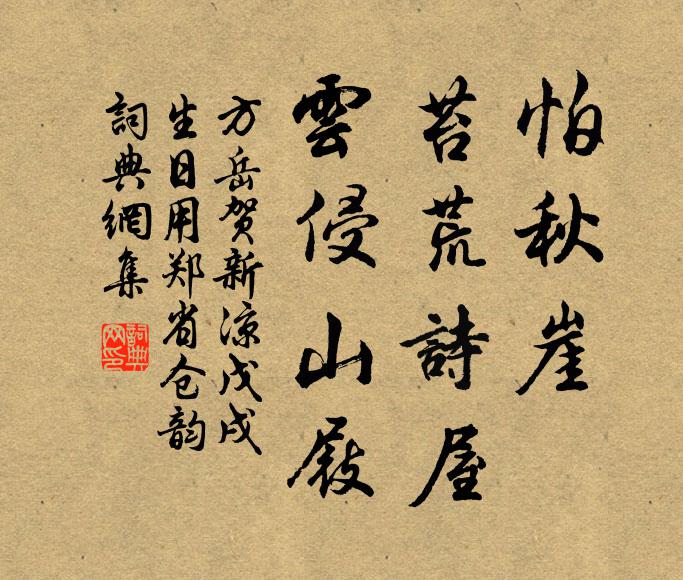 怕秋崖
苔荒詩屋
雲侵山屐
方岳贺新凉戊戌
生日用郑省仓韵
詞典網集
詞典网印